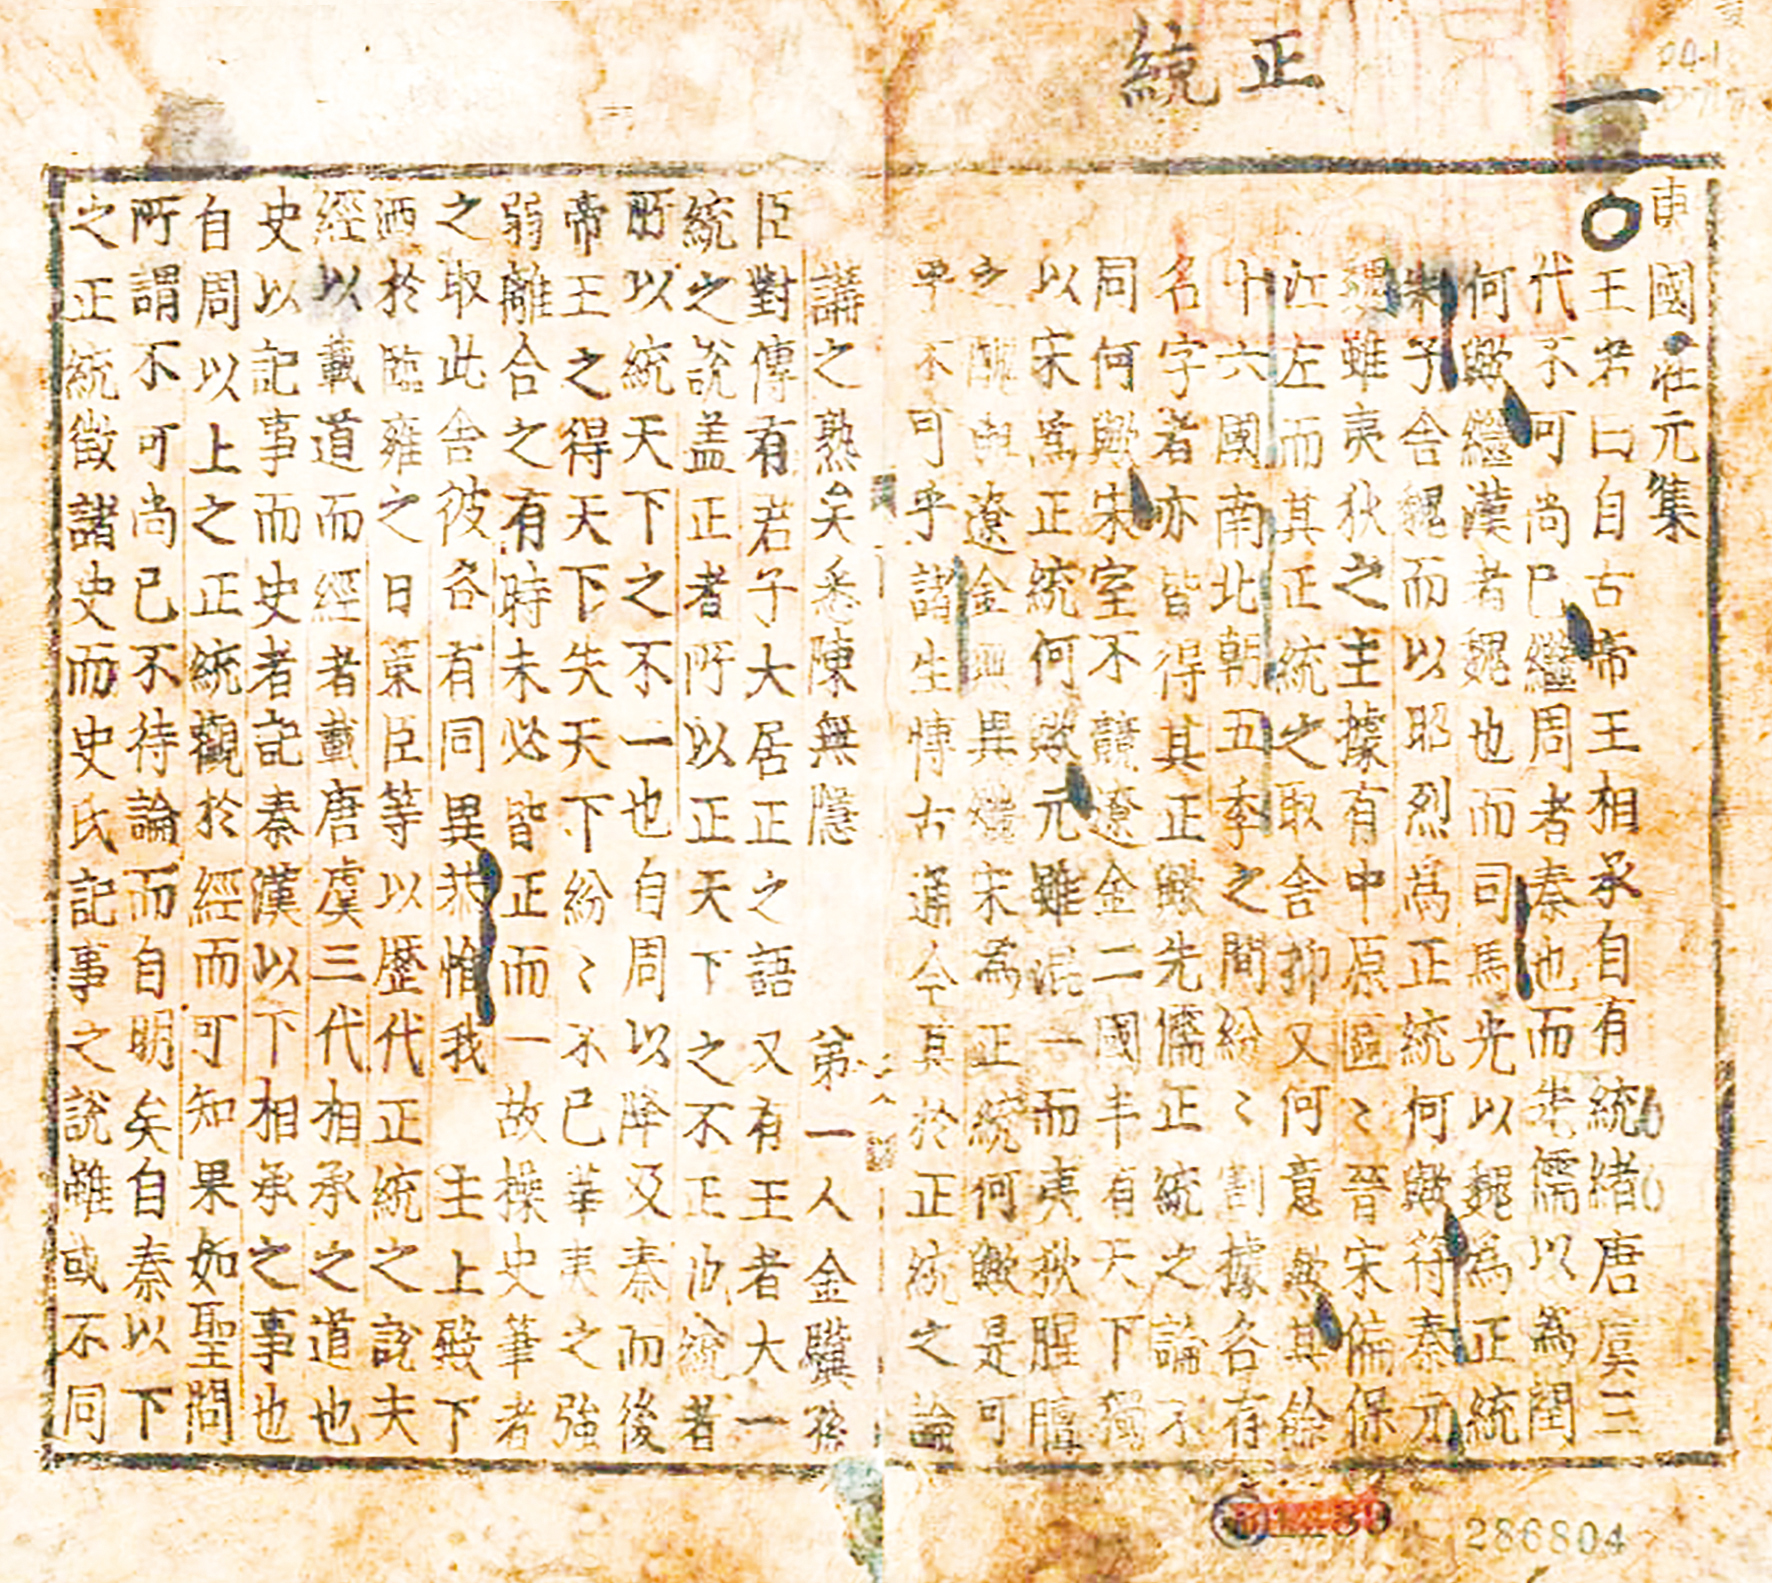 正統
一
東國壯元集
王若曰自古帝王相承自有統緖唐虞三
代不可尙已繼周者秦也而先儒以爲閏
何歟繼漢者魏也而司馬光以魏爲正統
朱子舍魏而以昭烈爲正統何歟符秦元
魏雖夷狄之主據有中原區〻晉宋偏保
江左而其正統之取舍抑又何意歟其餘
十六國南北朝丑季之間紛〻割據各存
名字者亦皆得其正歟先儒正統之論不
同何歟宋室不競遼金二國丰有天下獨
以宋爲正統何歟元雖混一而夷狄腥膻
之醜與遼金無異繼宋爲正統何歟是可
乎不可乎諸生博古通今其於正統之論
講之熟矣悉陳無隱
第一人金驥孫
臣對傳有君子大居正之語又有王者大一
統之說盖正者所以正天下之不正也統者
所以統天下之不一也自周以降及秦而後
帝王之得天下失天下紛〻不已華夷之強
弱離合之有時未必皆正而一故操史筆者
之取此舍彼各有同異恭惟我 主上殿下
洒於臨雍之日策臣等以歷代正統之說夫
經以載道而經者載唐虞三代相承之道也
史以記事而史者記秦漢以下相承之事也
自周以上之正統觀於經而可知果如聖問
所謂不可尙已不待論而自明矣自秦以下
之正統徵諸史而史氏記事之說雖或不同
286804